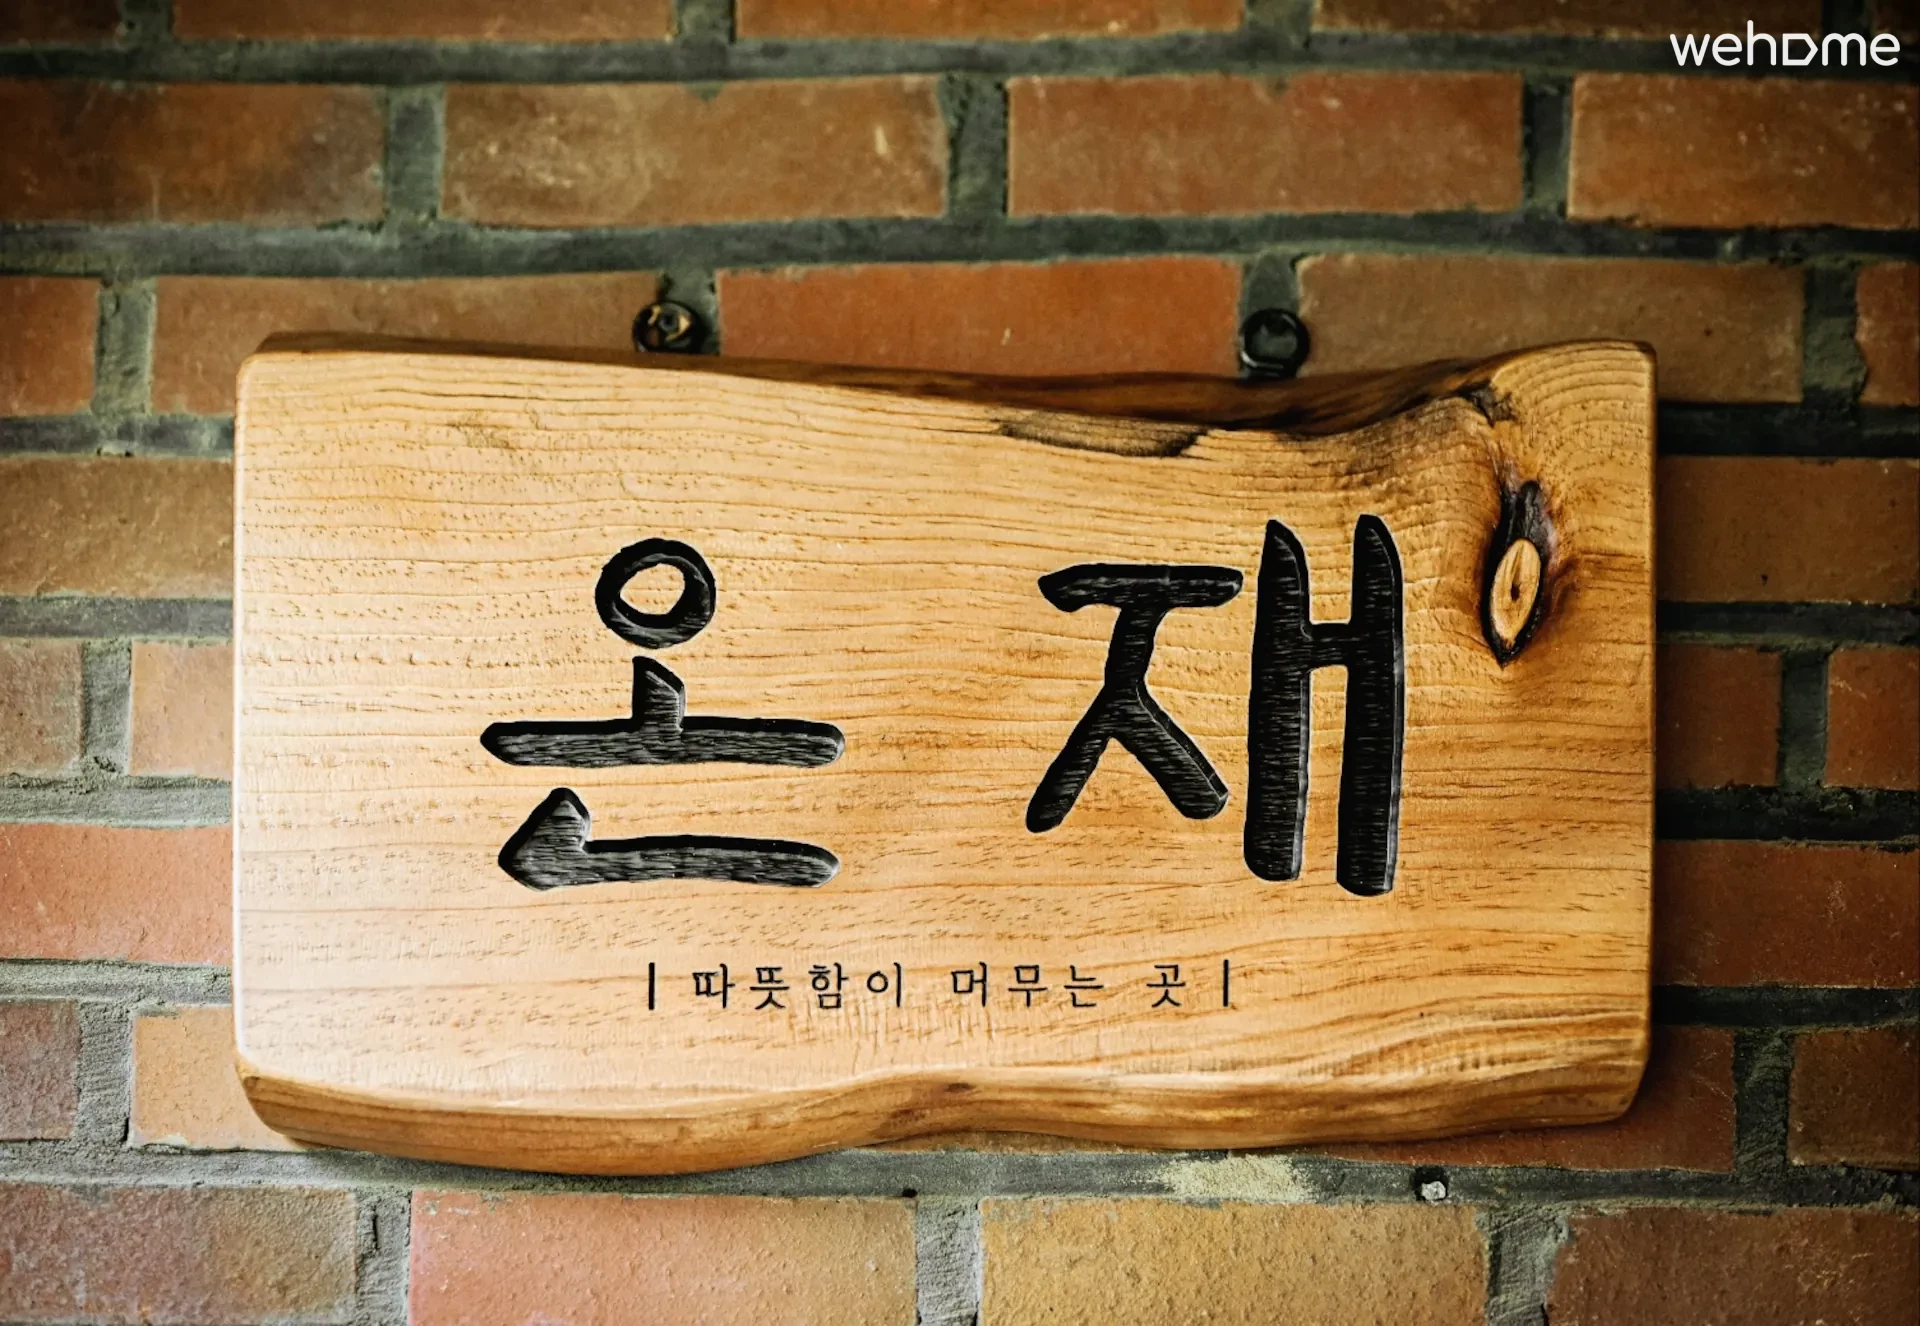 wehome
온재
| 따뜻함이 머무는 곳 |